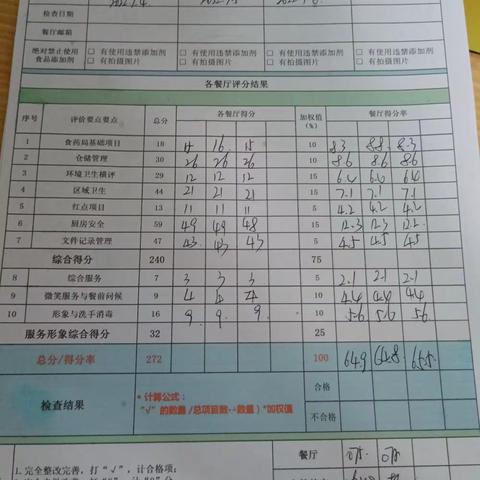 检查日期
餐厅邮箱
绝对禁止使用 □ 有使用违禁添加剂 □ 有使用违禁添加剂 □ 有使用违禁添加剂 □ 有使用违禁添加剂
食品添加剂 □ 有拍摄图片 □ 有拍摄图片 □ 有拍摄图片 □ 有拍摄图片
各餐厅评分结果
序号 评价要点要点 总分 各餐厅得分 加权值(%) 餐厅得分率
1 食药局基础项目 18 15 16 15 10 8.3 8.8 8.3
2 仓储管理 30 26 26 26 10 8.6 8.6 8.6
3 环境卫生横评 29 12 12 12 15 6.4
4 区域卫生 44 21 21 21 15 7.1 7.1 7.1
5 红点项目 13 11 11 11 5 4.2 4.2 4.2
6 厨房安全 59 49 49 48 15 12.3 12.3 12.2
7 文件记录管理 47 43 43 43 5 4.5 4.5 4.5
综合得分 240 75
8 综合服务 7 3 3 3 5 2.1 2.1 2.1
9 微笑服务与餐前问候 9 4 4 4 10 4.4 4.4 4.4
10 形象与洗手消毒 16 9 9 9 10 5.6 5.6 5.6
服务形象综合得分 32 25
总分/得分率 272 100 64.9 64.8
检查结果 * 计算公式： 合格
"√"的数量 /总项目数--数量）*加权值 不合格
餐厅
1. 完全整改完善，打"√"，计合格项；